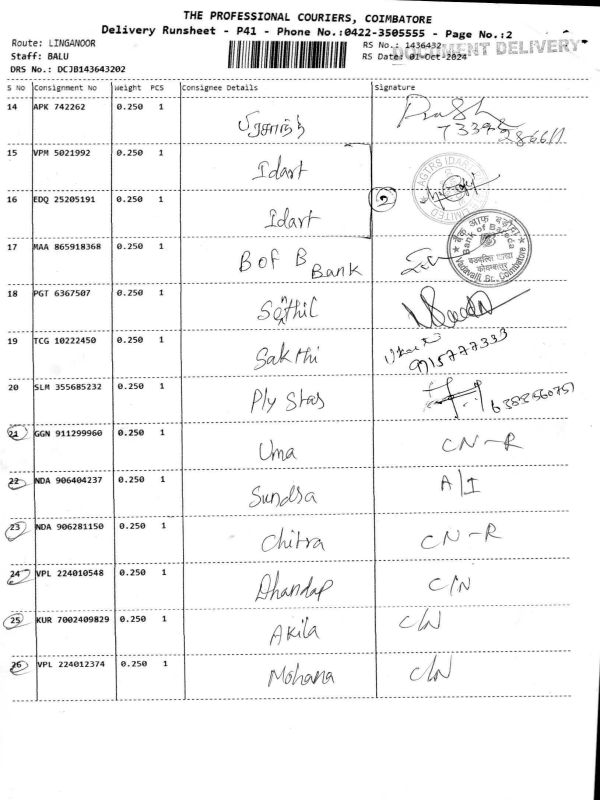 THE PROFESSIONAL COURIERS, COIMBATORE
Delivery Runsheet - P41 - Phone No.:0422-3505555 - Page No.:2
Route: LINGANOOR
RS No.: 1436432
DOCUMENT DELIVERY
Staff: BALU
RS Date: 01-Oct-2024
DRS No.: DCJB143643202
S No Consignment No Weight PCS Consignee Details Signature
14 APK 742262 0.250 1 பிரசாந்த் Prash
15 VPM 5021992 0.250 1 Idart
16 EDQ 25205191 0.250 1 Idart 2
17 MAA 865918368 0.250 1 B of B Bank
बैंक ऑफ बड़ौदा
Bank of Baroda
Vadavalli Br., Coimbatore
18 PGT 6367507 0.250 1 Senthil
19 TCG 10222450 0.250 1 Sakthi 9715777333
20 SLM 355685232 0.250 1 Ply Stas 6383560751
21 GGN 911299960 0.250 1 Uma CN-R
22 NDA 906404237 0.250 1 Sundsa A/I
23 NDA 906281150 0.250 1 Chitra CN-R
24 VPL 224010548 0.250 1 Dhandap C/N
25 KUR 7002409829 0.250 1 Akila C/N
26 VPL 224012374 0.250 1 Mohana C/N